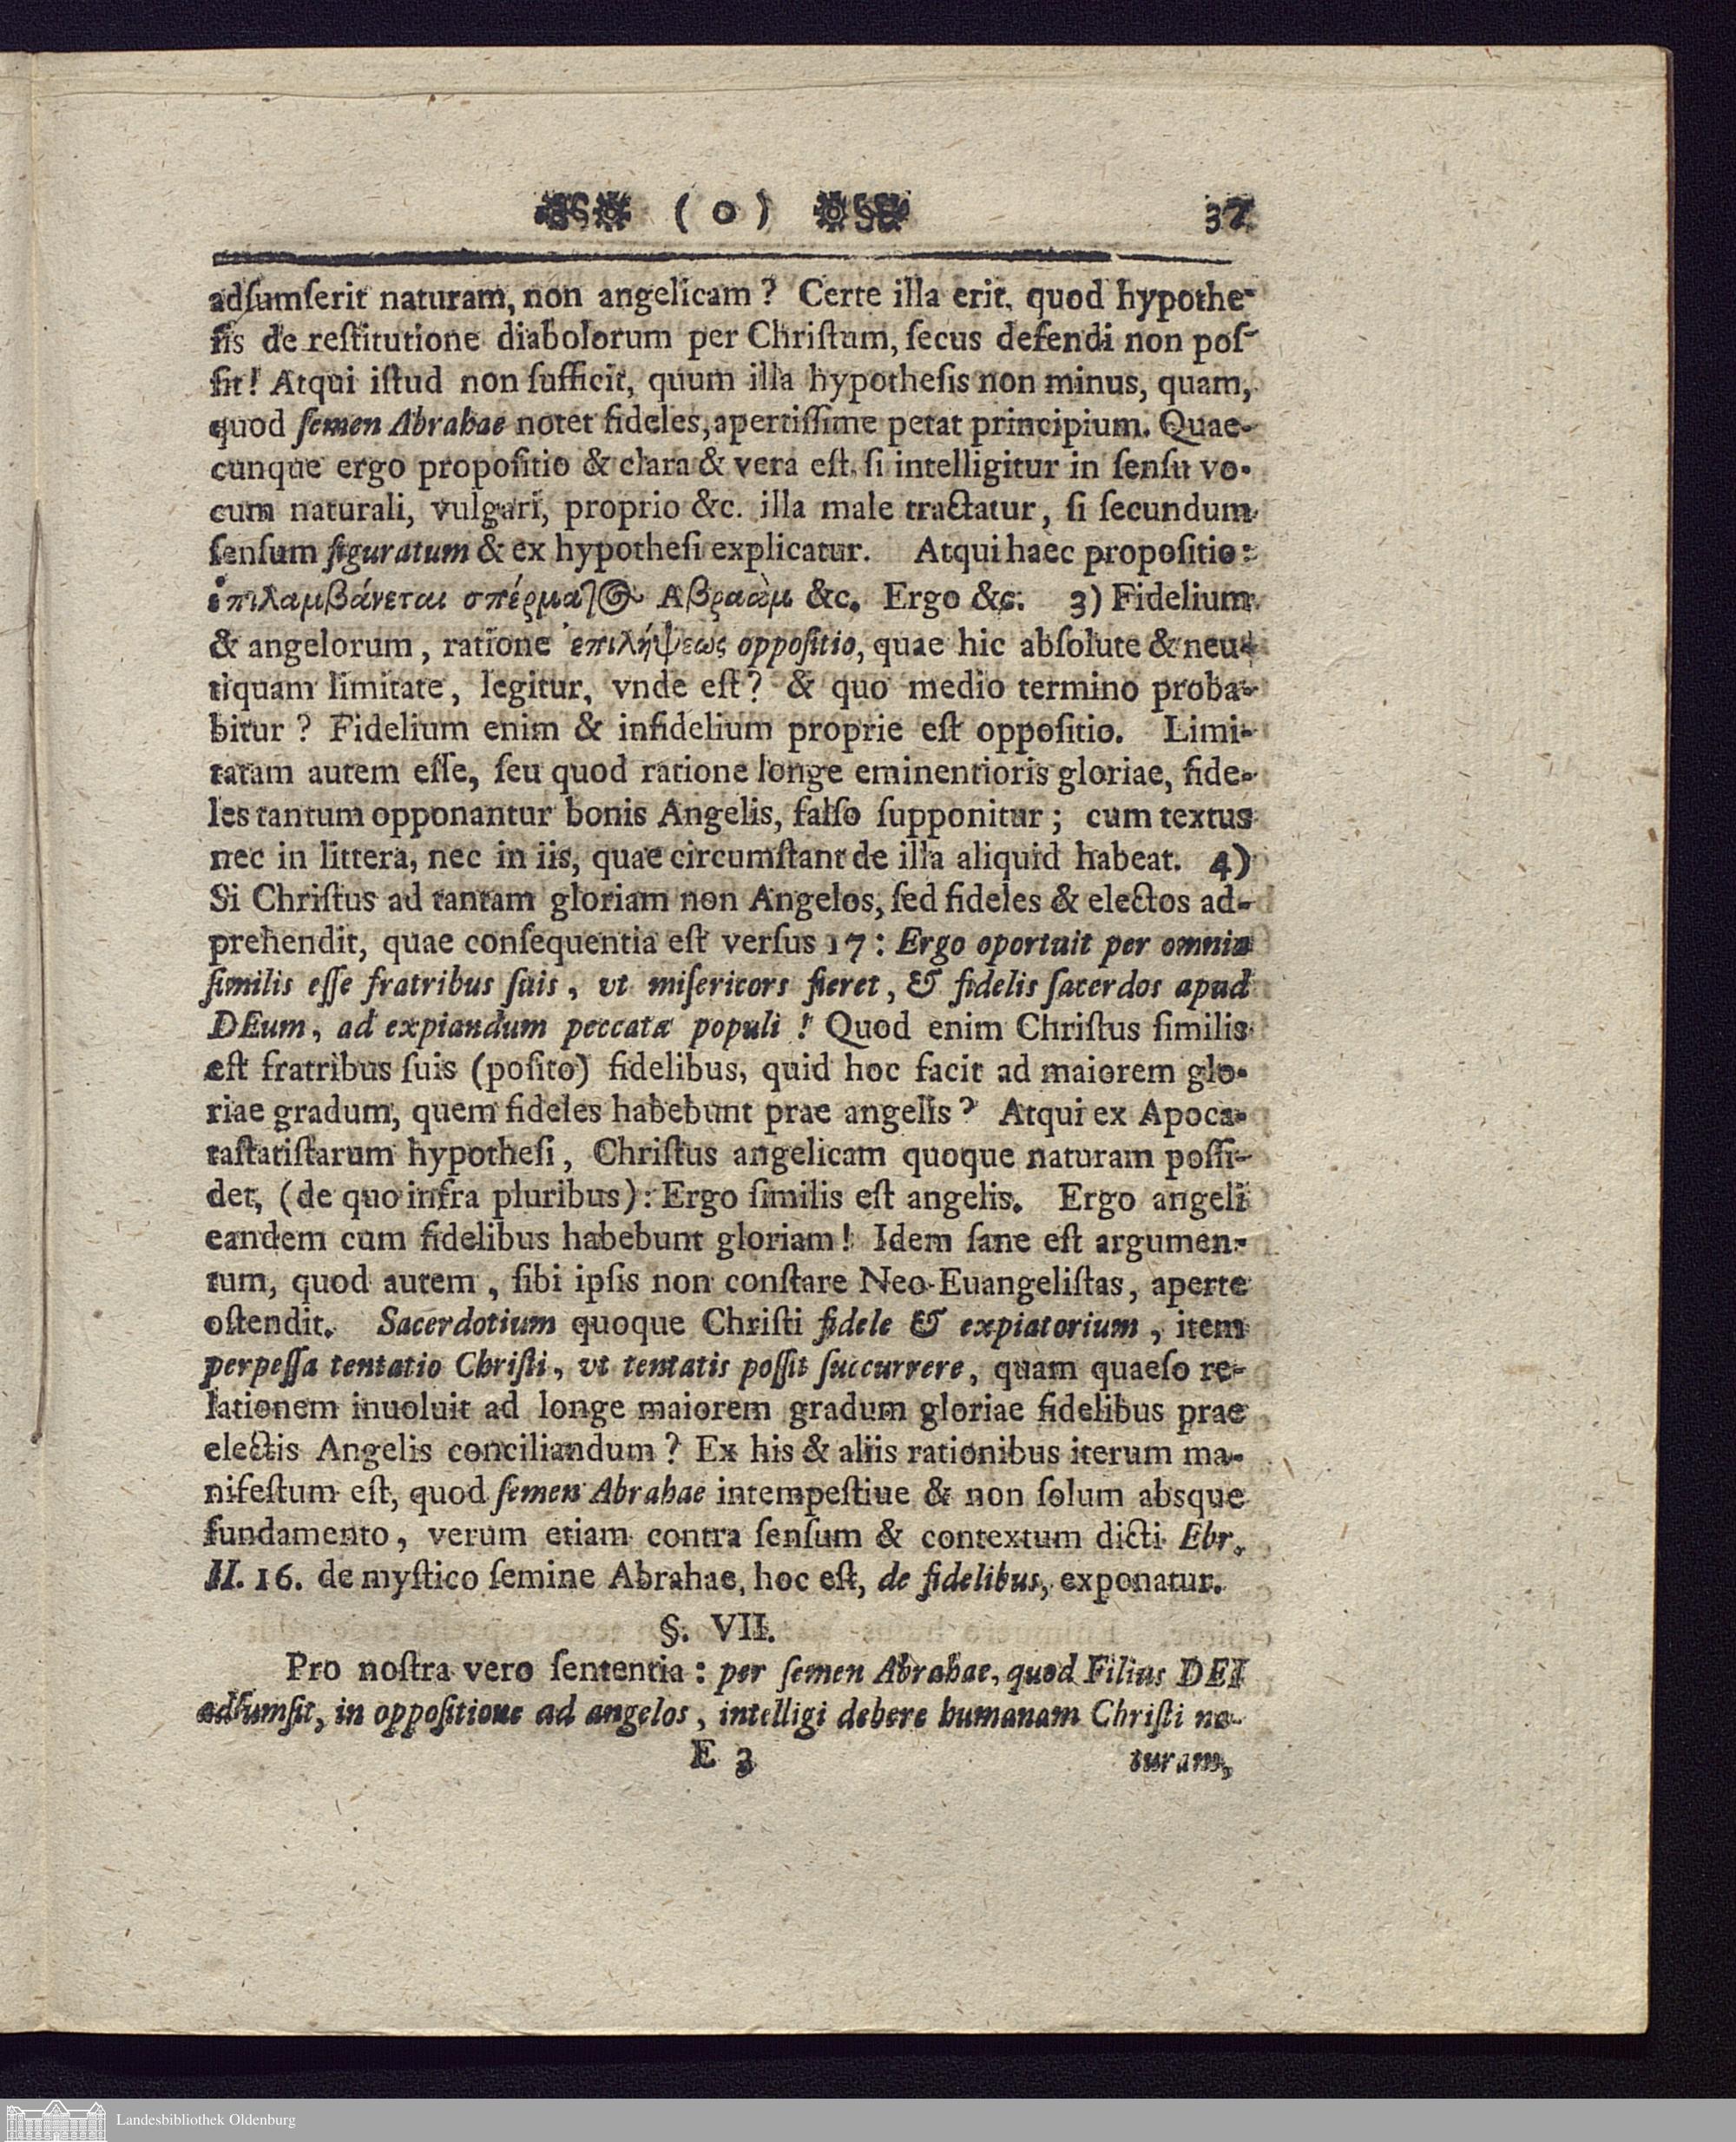 ( o ) 37
adſumſerit naturam, non angelicam? Certe illa erit, quod hypothe-
ſis de reſtitutione diabolorum per Chriſtum, ſecus defendi non poſ-
ſit! Atqui iſtud non ſufficit, quum illa hypotheſis non minus, quam,
quod ſemen Abrahae notet fideles, apertiſſime petat principium. Quae-
cunque ergo propoſitio & clara & vera eſt, ſi intelligitur in ſenſu vo-
cum naturali, vulgari, proprio &c. illa male tractatur, ſi ſecundum
ſenſum figuratum & ex hypotheſi explicatur. Atqui haec propoſitio:
ἐπιλαμβάνεται σπέρματος Αβραὼμ &c. Ergo &c. 3) Fidelium
& angelorum, ratione ἐπιλήψεως oppoſitio, quae hic abſolute & neu-
tiquam limitate, legitur, vnde eſt? & quo medio termino proba-
bitur? Fidelium enim & infidelium proprie eſt oppoſitio. Limi-
tatam autem eſſe, ſeu quod ratione longe eminentioris gloriae, fide-
les tantum opponantur bonis Angelis, falſo ſupponitur; cum textus
nec in littera, nec in iis, quae circumſtant de illa aliquid habeat. 4)
Si Chriſtus ad tantam gloriam non Angelos, ſed fideles & electos ad-
prehendit, quae conſequentia eſt verſus 17: Ergo oportuit per omnia
ſimilis eſſe fratribus ſuis, vt miſericors fieret, & fidelis ſacerdos apud
DEum, ad expiandum peccata populi! Quod enim Chriſtus ſimilis
eſt fratribus ſuis (poſito) fidelibus, quid hoc facit ad maiorem glo-
riae gradum, quem fideles habebunt prae angelis? Atqui ex Apoca-
taſtatiſtarum hypotheſi, Chriſtus angelicam quoque naturam poſſi-
det, (de quo infra pluribus): Ergo ſimilis eſt angelis. Ergo angeli
eandem cum fidelibus habebunt gloriam! Idem ſane eſt argumen-
tum, quod autem, ſibi ipſis non conſtare Neo-Euangeliſtas, aperte
oſtendit. Sacerdotium quoque Chriſti fidele & expiatorium, item
perpeſſa tentatio Chriſti, vt tentatis poſſit ſuccurrere, quam quaeſo re-
lationem inuoluit ad longe maiorem gradum gloriae fidelibus prae
electis Angelis conciliandum? Ex his & aliis rationibus iterum ma-
nifeſtum eſt, quod ſemen Abrahae intempeſtiue & non ſolum absque
fundamento, verum etiam contra ſenſum & contextum dicti Ebr.
II. 16. de myſtico ſemine Abrahae, hoc eſt, de fidelibus, exponatur.
§. VII.
Pro noſtra vero ſententia: per ſemen Abrahae, quod Filius DEI
adſumſit, in oppoſitione ad angelos, intelligi debere humanam Chriſti na-
E 3 turam,
Landesbibliothek Oldenburg